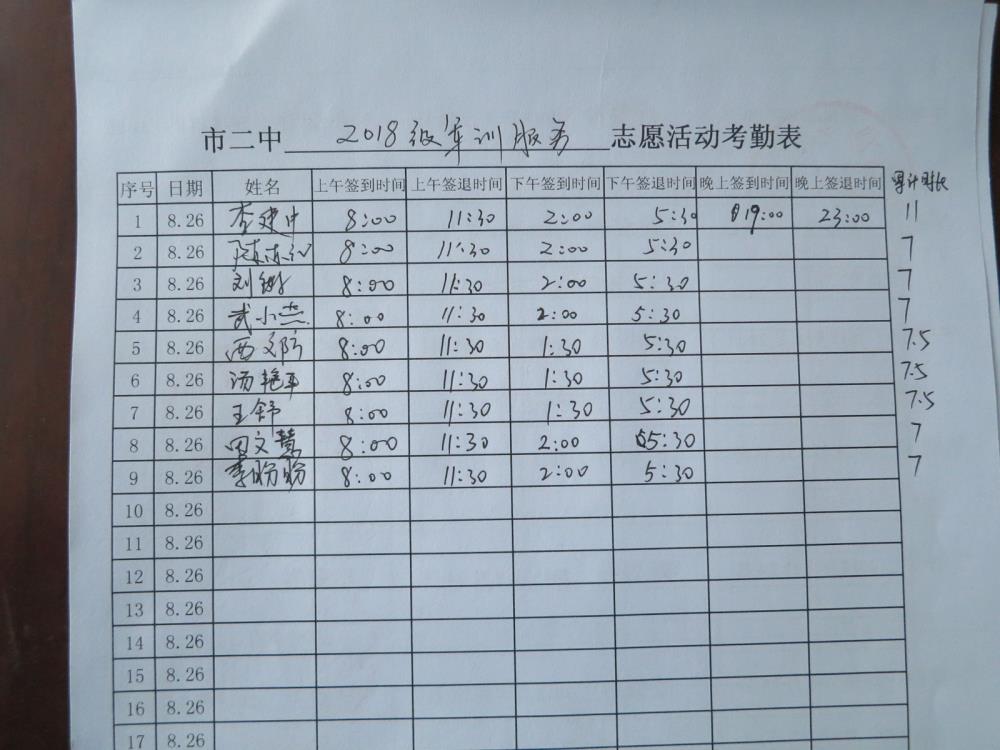 市二中 2018级军训服务 志愿活动考勤表
序号 日期 姓名 上午签到时间 上午签退时间 下午签到时间 下午签退时间 晚上签到时间 晚上签退时间 累计时长
1 8.26 李建中 8:00 11:30 2:00 5:30 19:00 23:00 11
2 8.26 8:00 11:30 2:00 5:30 7
3 8.26 刘 8:00 11:30 2:00 5:30 7
4 8.26 武小燕 8:00 11:30 2:00 5:30 7
5 8.26 8:00 11:30 1:30 5:30 7.5
6 8.26 汤艳平 8:00 11:30 1:30 5:30 7.5
7 8.26 王舒 8:00 11:30 1:30 5:30 7.5
8 8.26 田文慧 8:00 11:30 2:00 5:30 7
9 8.26 李盼盼 8:00 11:30 2:00 5:30 7
10 8.26
11 8.26
12 8.26
13 8.26
14 8.26
15 8.26
16 8.26
17 8.26